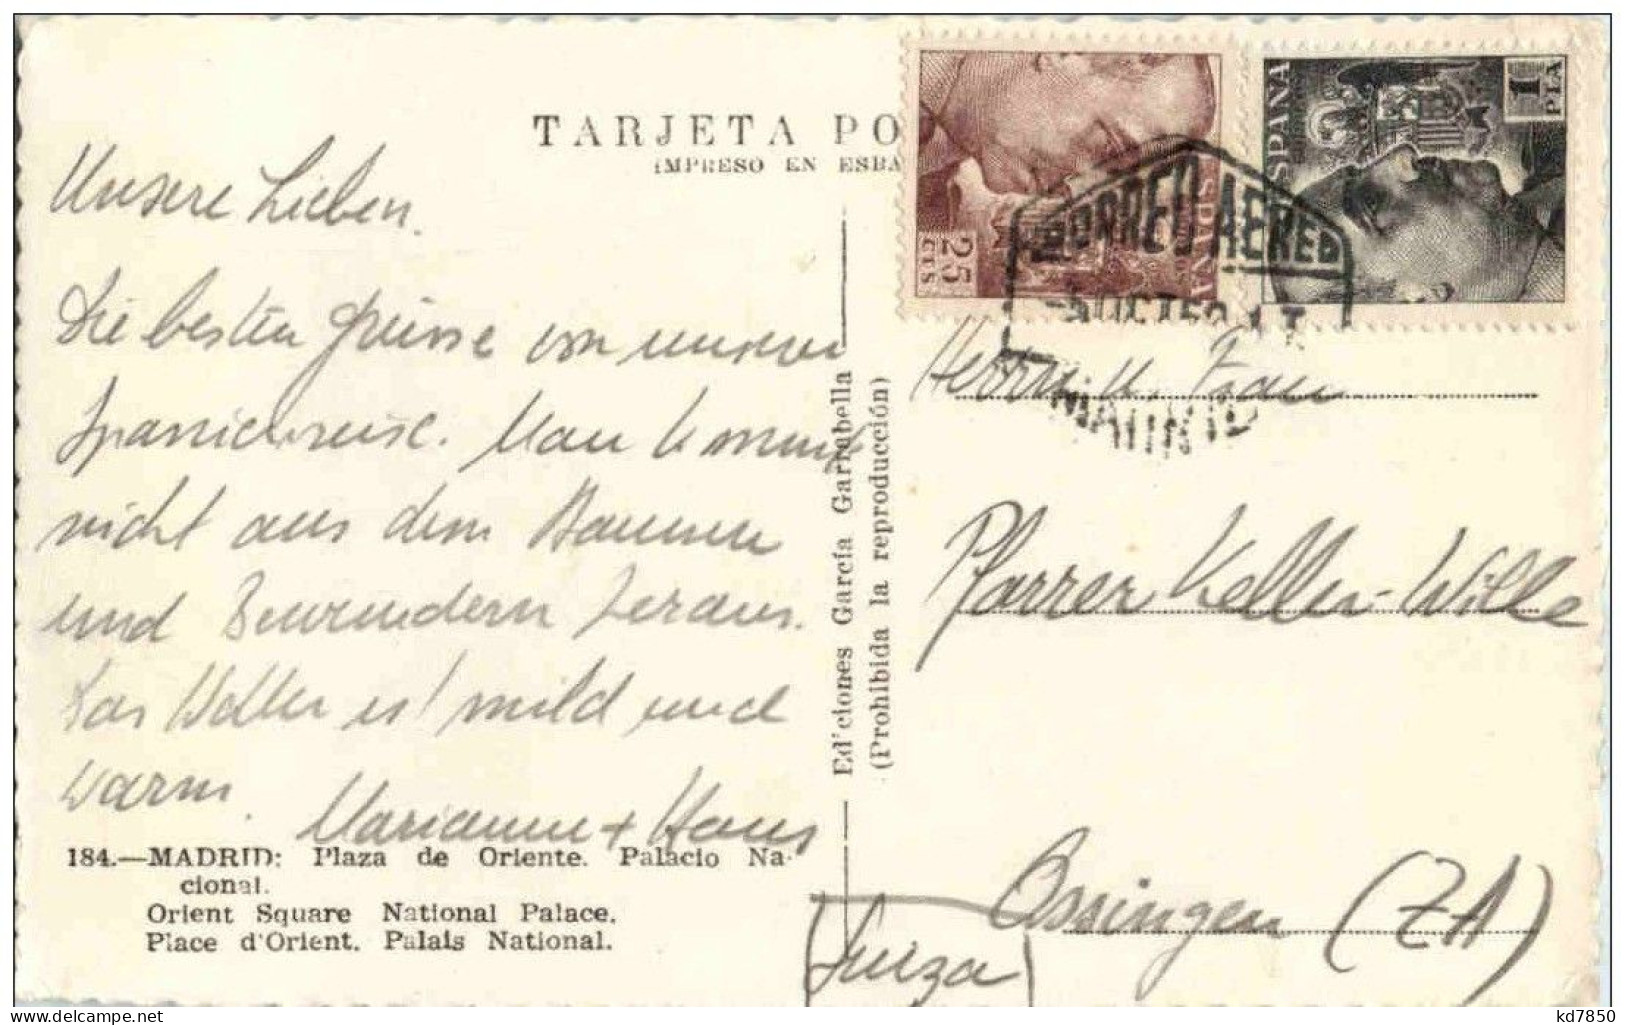 TARJETA PO
IMPRESO EN ESPA
Unsere Lieben.
Die besten Grüsse von unserer
Spanienreise. Man kommt
nicht aus dem Staunen
und Bewundern heraus.
Das Wetter ist mild und
warm.
Marianne + Hans
184.—MADRID: Plaza de Oriente. Palacio Na-
cional.
Orient Square National Palace.
Place d'Orient. Palais National.
Ediciones García Garrabella
(Prohibida la reproducción)
25 CTS
ESPAÑA
1 PTA
CORREO AEREO
MADRID
Herrn u. Frau
Pfarrer Keller-Wille
Ossingen (ZH)
Suiza
kd7850